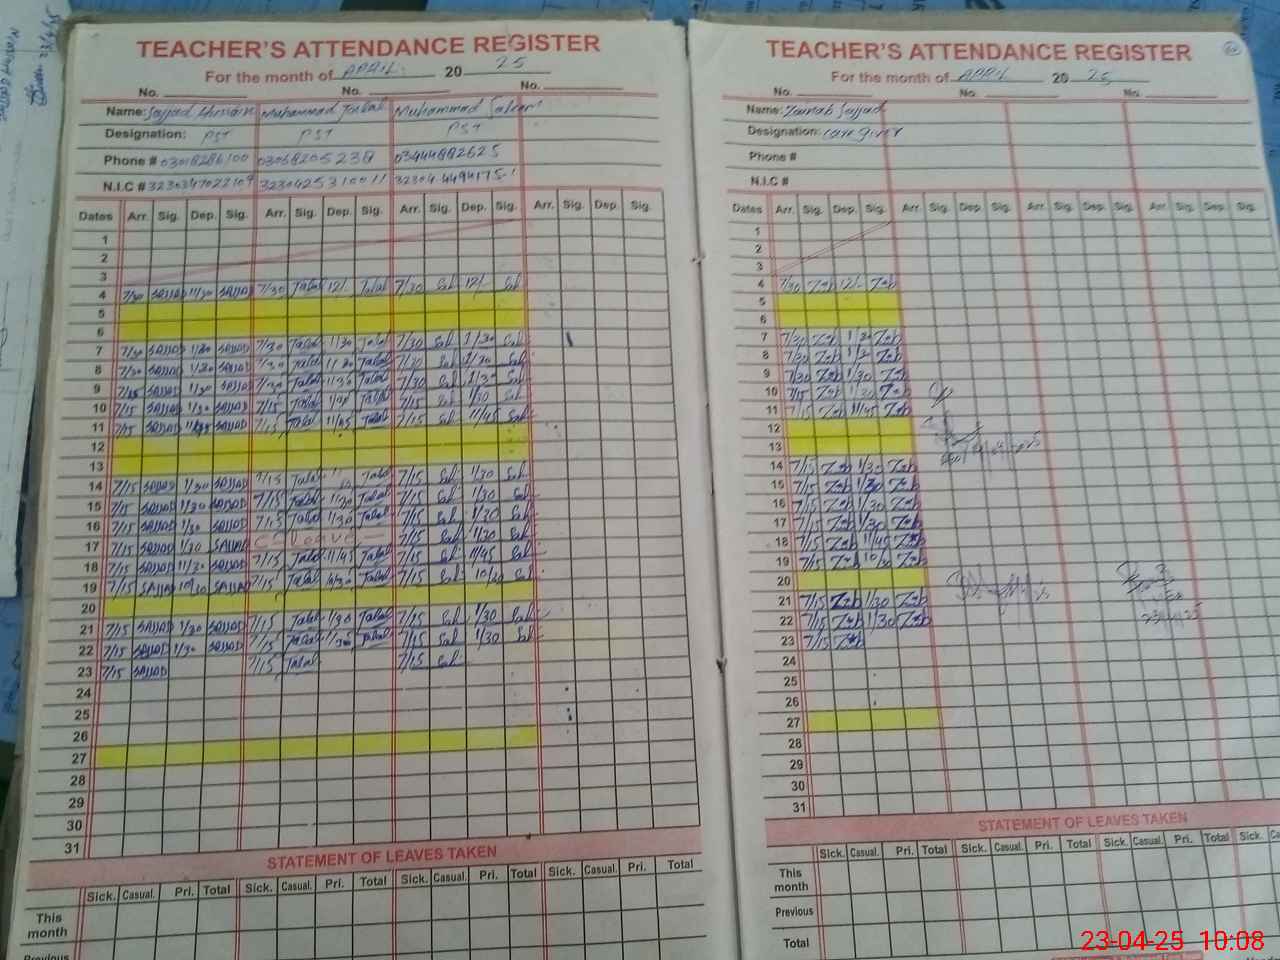 TEACHER'S ATTENDANCE REGISTER
For the month of APRIL 20 25
No. No. No.
Name: Sajjad Hussain Muhammad Talal Muhammad Saleem
Designation: PST PST PST
Phone # 03018286100 03068205238 03444882625
N.I.C #
Dates Arr. Sig. Dep. Sig. Arr. Sig. Dep. Sig. Arr. Sig. Dep. Sig. Arr. Sig. Dep. Sig.
1
2
3
4 7/30 SAJJAD 11/30 SAJJAD 7/30 Talal 12/- Talal 7/30 Sal 12/- Sal
5
6
7 7/30 SAJJAD 1/30 SAJJAD 7/30 Talal 1/30 Talal 7/30 Sal 1/30 Sal
8 7/30 SAJJAD 1/30 SAJJAD 7/30 Talal 1/30 Talal 7/30 Sal 1/30 Sal
9 7/15 SAJJAD 1/30 SAJJAD 7/30 Talal 1/30 Talal 7/30 Sal 1/30 Sal
10 7/15 SAJJAD 1/30 SAJJAD 7/15 Talal 1/30 Talal 7/15 Sal 1/30 Sal
11 7/15 SAJJAD 11/45 SAJJAD 7/15 Talal 11/45 Talal 7/15 Sal 11/45 Sal
12
13
14 7/15 SAJJAD 1/30 SAJJAD 7/15 Talal Talal 7/15 Sal 1/30 Sal
15 7/15 SAJJAD 1/30 SAJJAD 7/15 Talal 1/30 Talal 7/15 Sal 1/30 Sal
16 7/15 SAJJAD 1/30 SAJJAD 7/15 Talal 1/30 Talal 7/15 Sal 1/30 Sal
17 7/15 SAJJAD 1/30 SAJJAD C Leave 7/15 Sal 1/30 Sal
18 7/15 SAJJAD 11/30 SAJJAD 7/15 Talal 11/45 Talal 7/15 Sal 11/45 Sal
19 7/15 SAJJAD 10/30 SAJJAD 7/15 Talal 10/30 Talal 7/15 Sal 10/30 Sal
20
21 7/15 SAJJAD 1/30 SAJJAD 7/15 Talal 1/30 Talal 7/15 Sal 1/30 Sal
22 7/15 SAJJAD 1/30 SAJJAD 7/15 Talal 1/30 Talal 7/15 Sal 1/30 Sal
23 7/15 SAJJAD 7/15 Talal 7/15 Sal
24
25
26
27
28
29
30
31
STATEMENT OF LEAVES TAKEN
Sick. Casual. Pri. Total Sick. Casual. Pri. Total Sick. Casual. Pri. Total Sick. Casual. Pri. Total
This month
Previous
TEACHER'S ATTENDANCE REGISTER
For the month of APRIL 20 25
No. No. No.
Name: Zainab Sajjad
Designation: care giver
Phone #
N.I.C #
Dates Arr. Sig. Dep. Sig. Arr. Sig. Dep. Sig. Arr. Sig. Dep. Sig. Arr. Sig. Dep. Sig.
1
2
3
4 7/30 Zab 12/- Zab
5
6
7 7/30 Zab 1/30 Zab
8 7/30 Zab 1/30 Zab
9 7/30 Zab 1/30 Zab
10 7/15 Zab 1/30 Zab
11 7/15 Zab 11/45 Zab
12
13
14 7/15 Zab 1/30 Zab
15 7/15 Zab 1/30 Zab
16 7/15 Zab 1/30 Zab
17 7/15 Zab 1/30 Zab
18 7/15 Zab 11/45 Zab
19 7/15 Zab 10/30 Zab
20
21 7/15 Zab 1/30 Zab
22 7/15 Zab 1/30 Zab
23 7/15 Zab
24
25
26
27
28
29
30
31
STATEMENT OF LEAVES TAKEN
Sick. Casual. Pri. Total Sick. Casual. Pri. Total Sick. Casual. Pri. Total Sick.
This month
Previous
Total
23-04-25 10:08